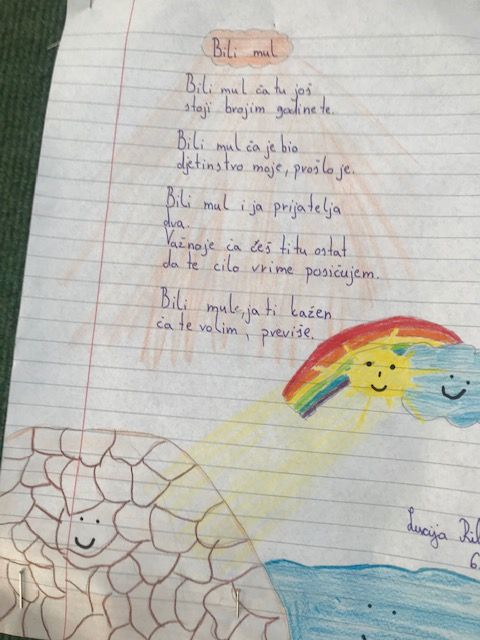 Bili mul
Bili mul ća tu još
stoji brojim godine te.
Bili mul ća je bio
djetinstvo moje, prošlo je.
Bili mul i ja prijatelja
dva.
Važnoje ća ćeš ti tu ostat
da te cilo vrime posićujem.
Bili mule, ja ti kažen
ća te volim, previše.
Lucija
6.